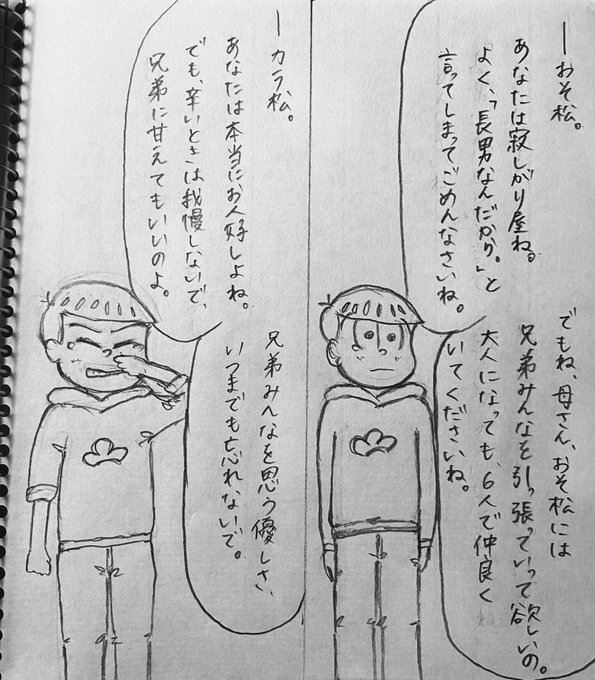 ーおそ松。
あなたは寂しがり屋ね。
よく、「長男なんだから。」と
言ってしまってごめんなさいね。
でもね、母さん、おそ松には
兄弟みんなを引っ張っていって欲しいの。
大人になっても、6人で仲良く
いてくださいね。
ーカラ松。
あなたは本当にお人好しよね。
でも、辛いときは我慢しないで、
兄弟に甘えてもいいのよ。
兄弟みんなを思う優しさ、
いつまでも忘れないで。